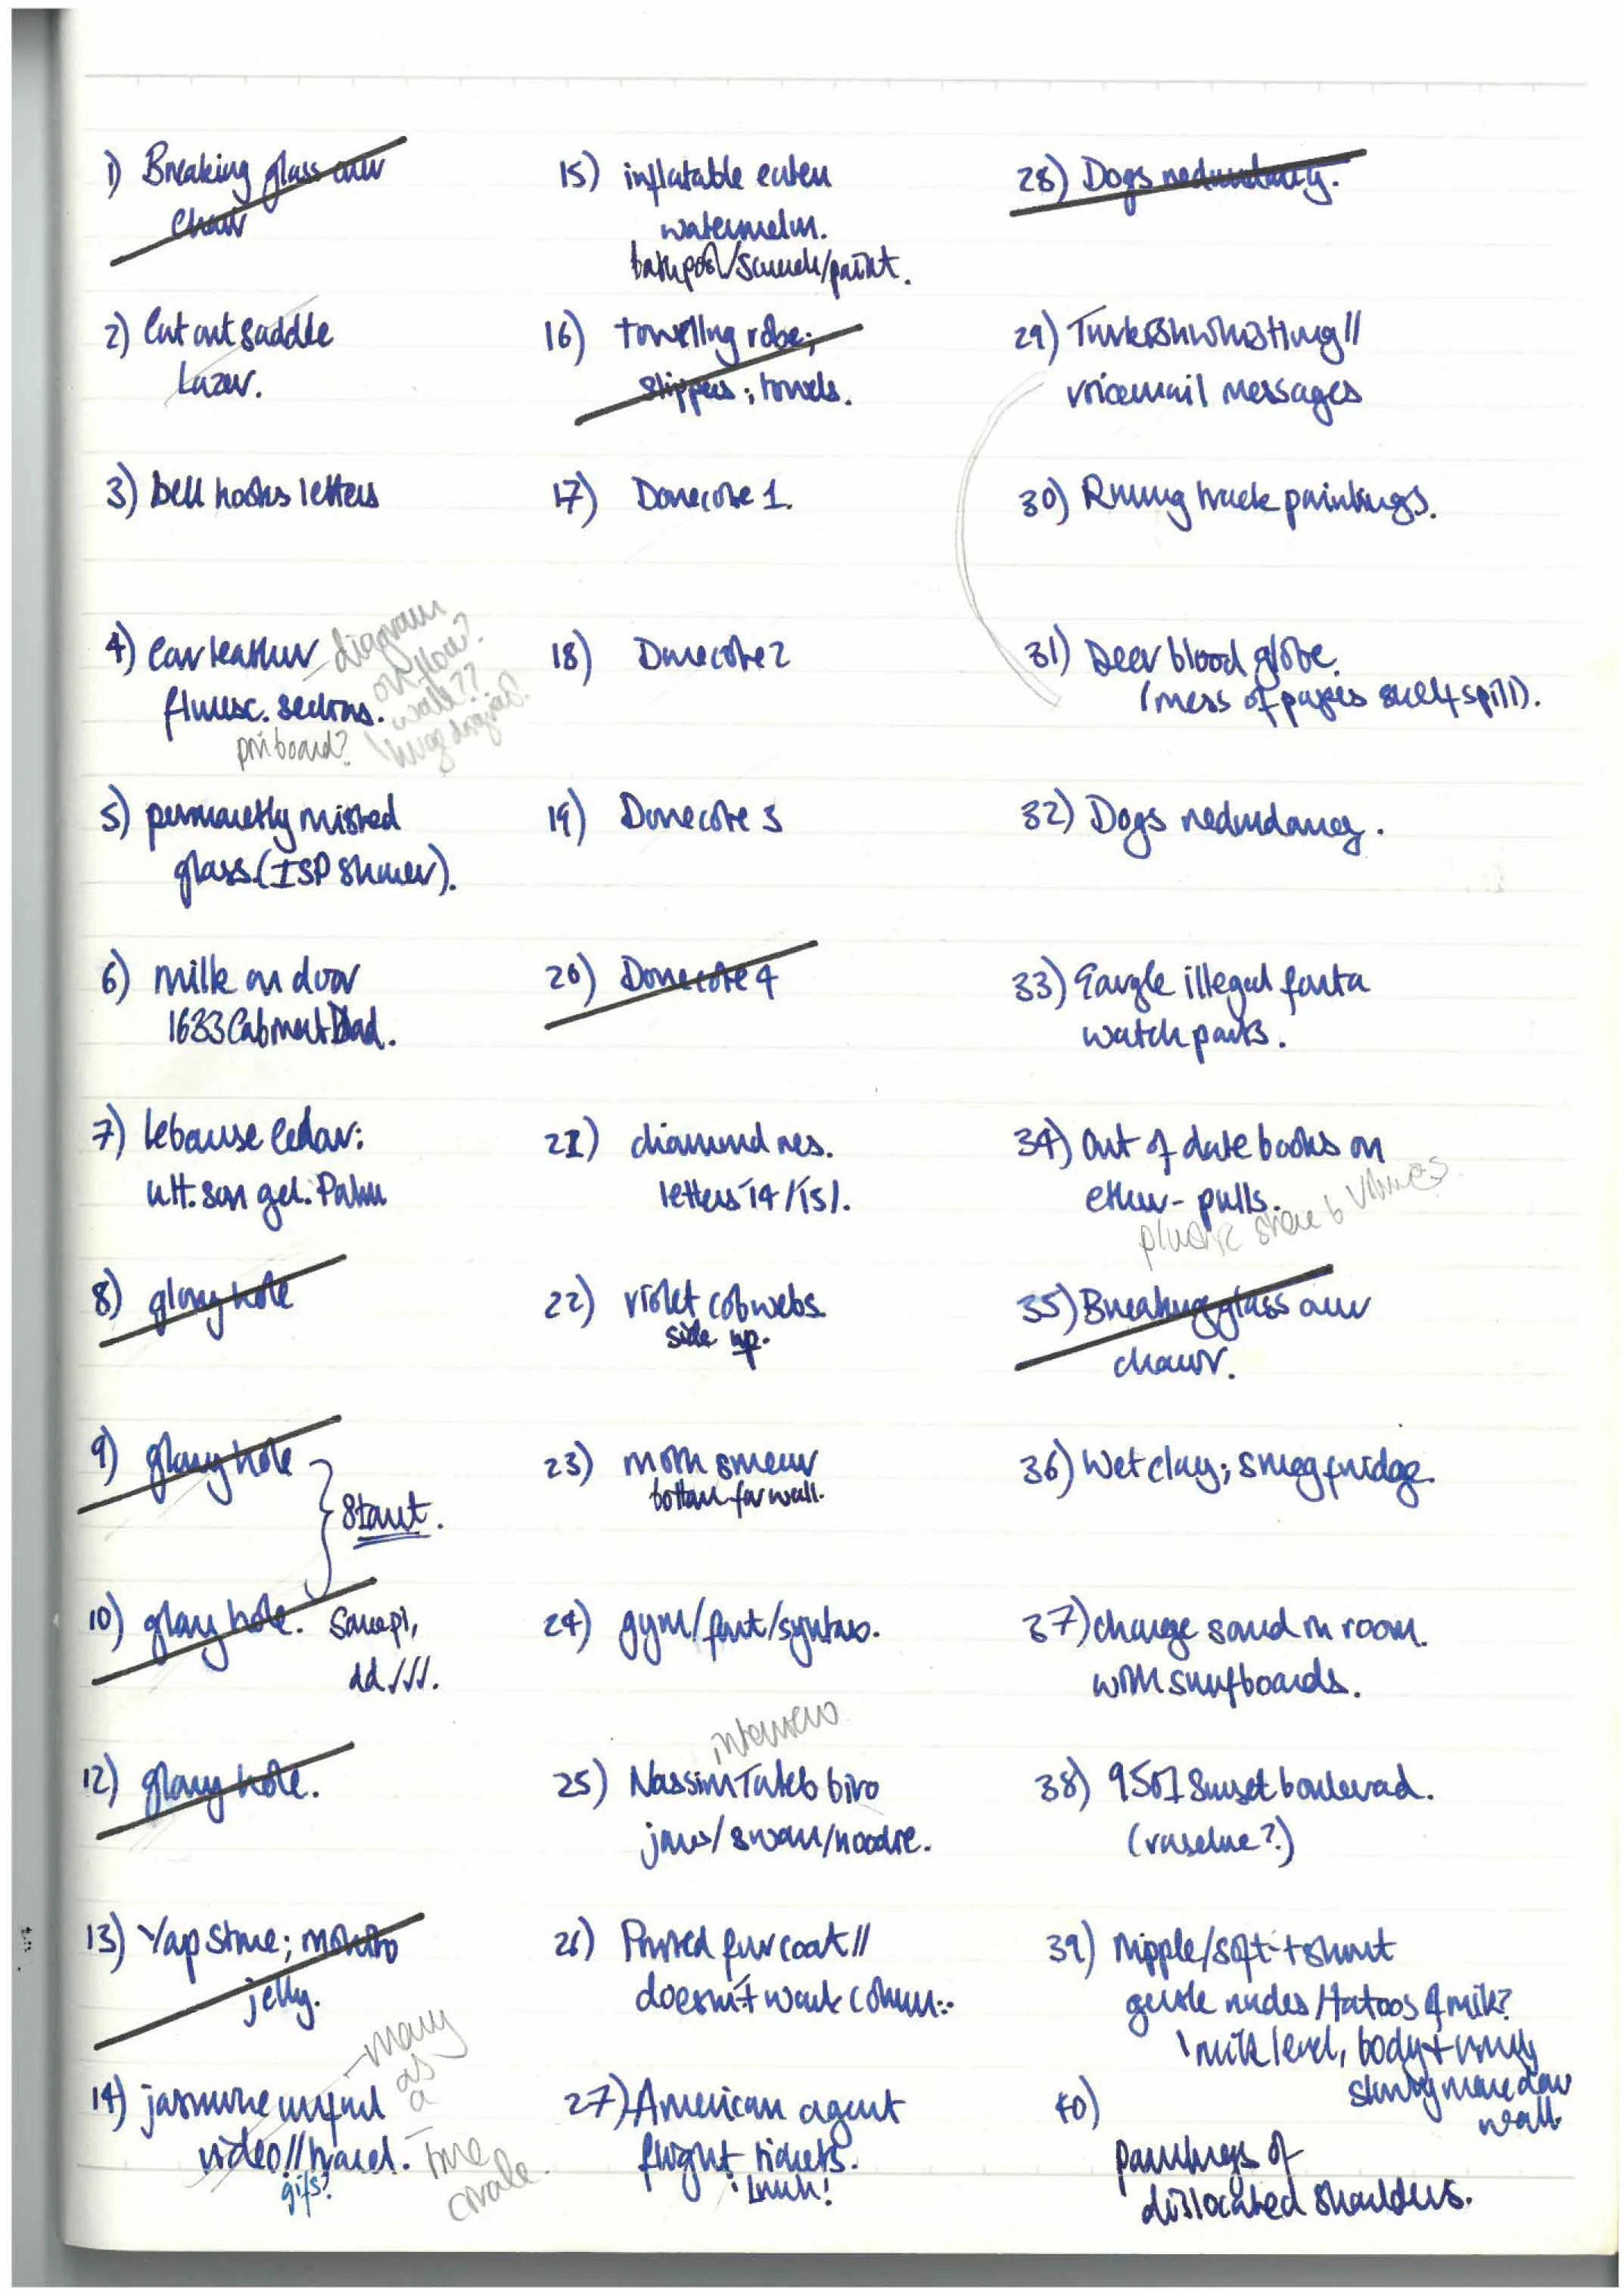 1) Breaking glass over
chair
2) Cut out saddle
Lazer.
3) bell hooks letters
4) Car leather
fluresc. sections.
pinboard?
diagram
on floor?
wall??
huge
5) permanetly misted
glass (ISP shower).
6) milk on door
1633 Cabinet Dad.
7) lebanese Cedar:
8) glory hole
9) glory hole
Start.
10) glory hole.
12) glory hole.
13) Yap Stone; mojito
jelly.
14) jasmine
video//travel.
gifs?
-many
as
a
time
15) inflatable eaten
watermelon.
16) towelling robe;
slippers; towels.
17) Donecote 1.
18) Donecote 2
19) Donecote 3
20) Donecote 4
21) diamond res.
letters '14/'15/.
22) violet cobwebs
side up.
23) moth smear
bottom far wall.
24) gym/font/syntax.
interview
25) Nassim Taleb biro
jaws/swan/noodle.
26) Printed fur coat//
doesn't work
27) American agent
flight tickets.
: Lunch!
28) Dogs redundancy.
29) Turkish whistling//
voicemail messages
30) Runng track paintings.
31) Deer blood globe.
(mess of pages shelf spill).
32) Dogs redundancy.
33) Gargle illegal fanta
watch parts.
34) Out of date books on
ether - pulls.
35) Breaking glass over
chair.
36) Wet clay; smeg fridge.
37) change sound in room.
with surfboards.
38) 9501 Sunset boulevard.
(vaseline?)
39) Nipple/soft-t shirt
gentle nudes/tatoos of milk?
milk level, body +
wall.
40)
paintings of
dislocated shoulders.